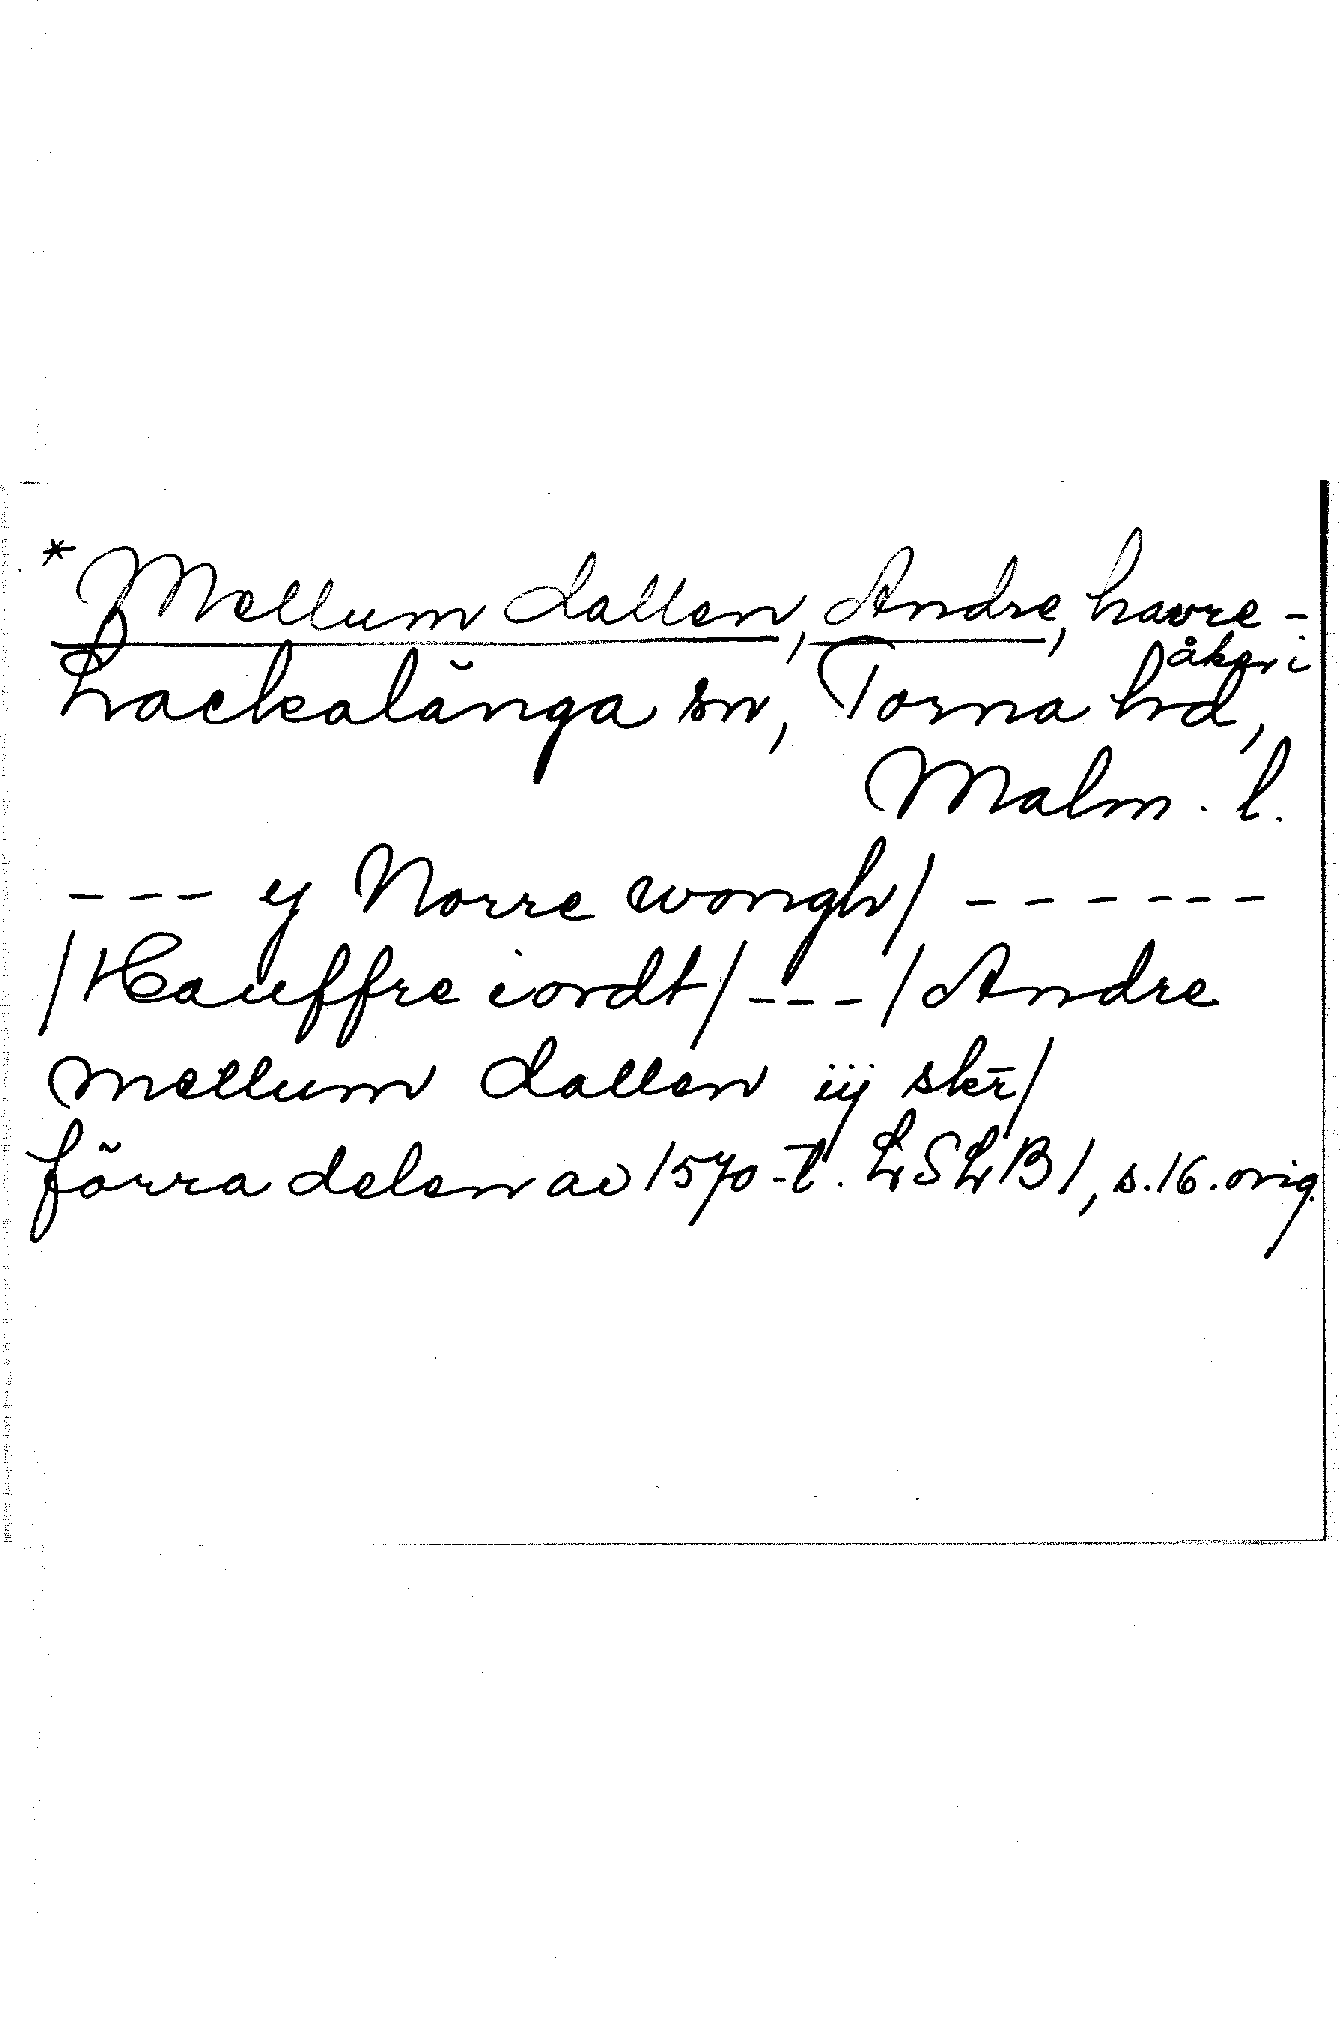 *Mellum dallen, Andre, havre-
åker i
Lackalänga sn, Torna hd,
Malm. l.
--- ij Norre wongh/ ------
/Hauffre iordt/---/Andre
mellum dallen iij skr̄/
förra delen av 1570-t. LSLB1, s.16. orig.